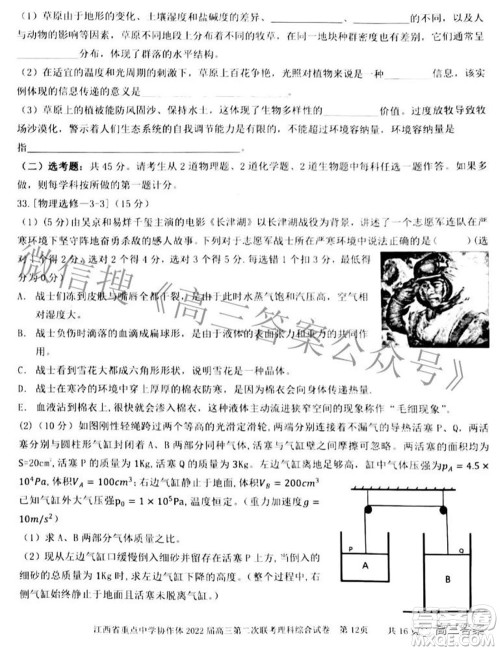 （1）草原由于地形的变化、土壤湿度和盐碱度的差异、______的不同，以及
人与动物的影响等因素，草原上不同地块种群密度也有差别，它们常呈______
分布，体现了群落的水平结构。
（2）在适宜的温度和光周期的刺激下，草原上百花争艳，艳光交相是一种______信息，该实
例体现的信息传递的意义是______
（3）草原上的植被能防风固沙、保持水土，这体现了生物多样性的______价值。过度放牧导致牧
场沙漠化，警示着人们生态系统的自我调节能力是有限的，放牧量不能超过环境容纳量，环境容纳量是
指______
（二）选考题：共 45 分。请考生从 2 道物理题、2 道化学题、2 道生物题中每科任选一题作答。如果多
做，则每学科按所做的第一题计分。
33. [物理选修一3-3]（15 分）
（1）（5 分）由吴京和易烊千玺主演的电影《长津湖》以长津湖战役为背景，讲述了一个志愿军连队在严
寒环境下坚守阵地奋勇杀敌的故事。下列对于志愿军战士的所处环境分析正确的是（ ）
（填正确答案标号，选对 1 个得 2 分，选对 2 个得 4 分，选对 3 个得 5 分，每错选 1 个扣 3 分，最低得分
为 0 分）
A．战士们冻到皮肤与嘴唇全都干裂了，是由于此时水蒸气饱和汽压高，空气相
对湿度大
B．战士负伤时滴落的血滴成扁球形，是由于液体的表面张力和重力
C．战士看到雪花大都成六角形形状，说明雪花是一种晶体
D．战士在寒冷的环境中穿着厚厚的棉衣防寒，是
E．血液沾到棉衣上，并顺着棉线流动进去狭窄空间的现象称作“毛细现象”
（2）（10 分）如图，一细绳跨过同一高度的两个等高的光滑定滑轮，两端分别连接活塞 P、Q，两活
塞分别与圆柱形气缸封闭着 A、B 两部分气体。两气缸与活塞导热性能良好，两活塞的面积均为
S=20cm²，活塞 P 的质量为 1Kg，活塞 Q 的质量为 2Kg，左边气缸离地足够高，缸内空气体压强为pA = 4.5 ×
10⁴Pa，体积VA = 100cm³；右边气缸静止于地面，体积VB = 200cm³
已知气缸外大气压强p₀ = 1 × 10⁵Pa，温度恒定。（重力加速度g =
10m/s²）
（1）求 A、B 两部分气体的压强。
（2）现从左边气缸口缓慢倒入细砂并留存在活塞 P 上方，当倒入的
细砂的总质量为 1Kg 时，求此时右边气缸内气体的体积（假设整个过
程右边气缸静止于地面。）
P
A
Q
B
微信搜《高三答案公众号》
江西省重点中学协作体 2022 届高三第二次联考理科综合试卷 第 12页 共 16 页
高三答案